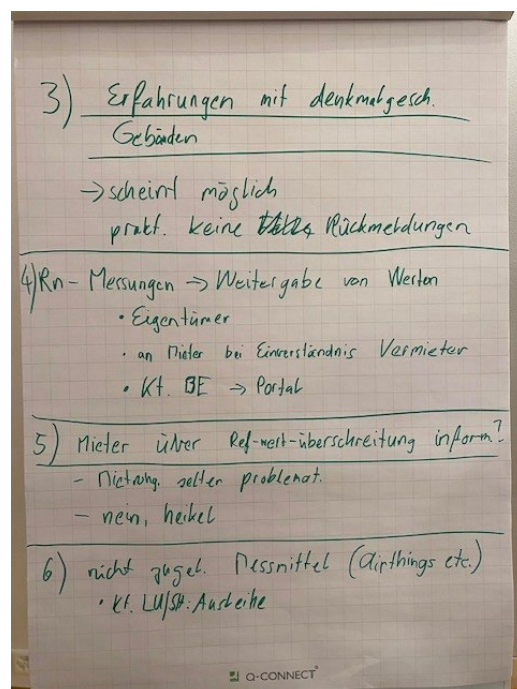 3) Erfahrungen mit denkmalgesch.
Gebäuden
→ scheint möglich
prakt. keine Rückmeldungen
4) Rn - Messungen → Weitergabe von Werten
• Eigentümer
• an Mieter bei Einverständnis Vermieter
• Kt. BE → Portal
5) Mieter über Ref-wert-überschreitung inform?
- Mietwng. selten problemat.
- nein, heikel
6) nicht zugel. Messmittel (Airthings etc.)
• Kt. LU/SH: Ausleihe
Q-CONNECT®